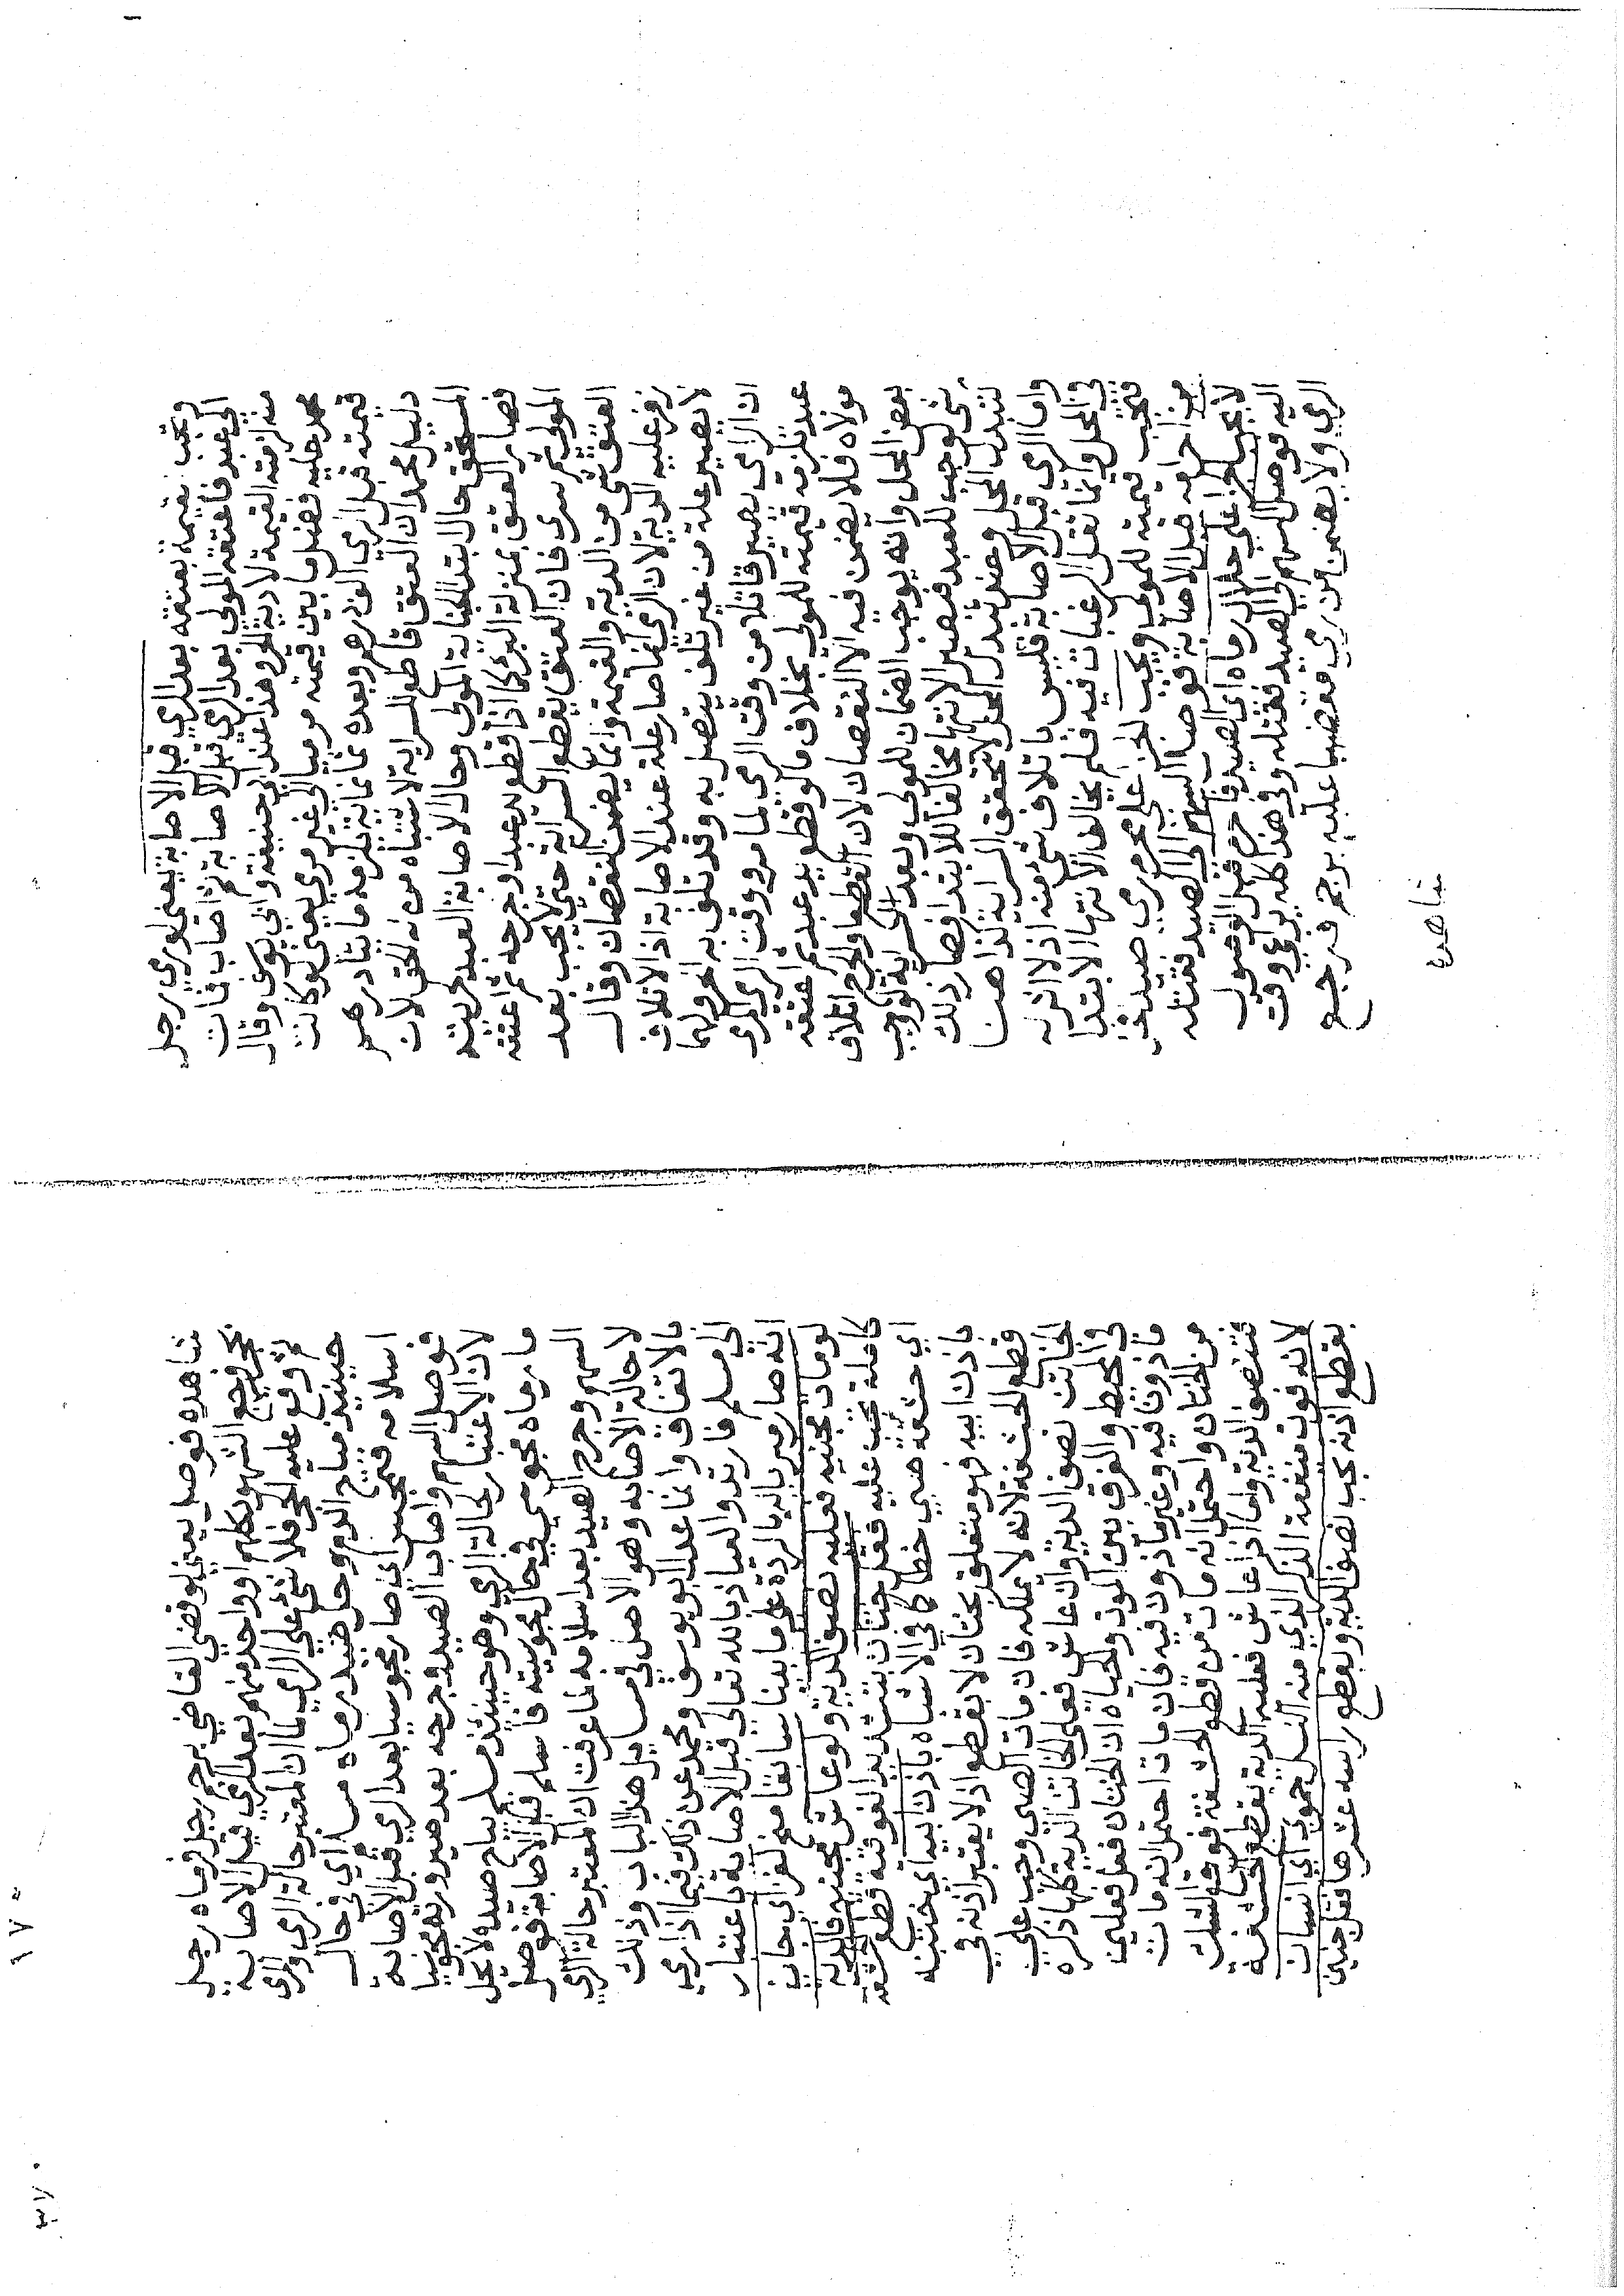 وتجب بقيمة بعتقه بعد الرمي قبل الاصابة يعني لو رمى رجل
الى عبد فاعتقه المولى بعد الرمي قبل الاصابة ثم اصاب فمات
منه لزمته القيمة لا دية الحر وهذا عند ابي حنيفة وابي يوسف وقال
محمد عليه فضل ما بين قيمته مرميا الى غير مرمي يعني لو كانت
قيمته قبل الرمي الف درهم وبعده ثمانماية يلزمه مايتا درهم
دليل محمد ان العتق قاطع للسراية لاشتباه من له الحق لان
المستحق حال ابتدا الجناية المولى وحال الاصابة العبد لحريته
فصار العتق بمنزلة البرء كما اذا قطع يد عبد او جرحه ثم اعتقه
المولى ثم سرى فان العتق يقطع السراية حتى لا يجب بعد
العتق شي من الدية والقيمة وانما يضمن النقصان وقال
زفر عليه الدية لان الرمي انما صار علة عند الاصابة اذ الاتلاف
لا يصير علة من غير تلف يتصل به وقد تلف به الحر ولهما
ان الرامي يصير قاتلا من وقت الرمي لما مر ووقت الرمي
عبد فتلزمه قيمته للمولى بخلاف ما لو قطع يد عبد ثم اعتقه
مولاه فلا يضمن فيه الا النقصان لان القطع والجرح اتلاف
بعض المحل وانه يوجب الضمان للمولى وبعد السراية لو وجب
شي لوجب للعبد فيصير الانتها مخالفا للابتدا فصار ذلك
كتبدل المحل وعند تبدل المحل لا تتحقق السراية لذا هنا
واما الرمي قبل الاصابة فليس باتلاف شي منه اذ لا اثر له
في المحل وانما تقل الرغبات فيه فلم يخالف الانتها الابتدا
فتجب قيمته للمولى ويجب الجزا على محرم رمى صيدا
من احرامه قبل الاصابة فوصل السهم الى الصيد فقتله
لا يجب اي الجزا على حلال رماه اي الصيد فاحرم قبل الوصول
اليه فوصل السهم الى الصيد فقتله وفي هذا كله يراعى وقت
الرمي ولا يضمن من رمى مقضيا عليه برجم فرجع
شاهده
شاهده فوصل يعني لو قضى القاضي برجم رجل فرماه رجل
بحجر فرجع الشهود كلهم او واحد منهم بعد الرمي قبل الاصابة
ثم وقع عليه الحجر فلا شي على الرامي لما ان المعتبر حالة الرمي والرمي
حينيذ مباح الدم وحل صيد رماه مسلم اي في حال
اسلامه فتمجس اي صار مجوسيا بعد الرمي قبل الاصابة
فوصل السهم واصاب الصيد وجرحه بعد صيرورته مجوسيا
لان الاعتبار لحالة الرمي وهو حينيذ مسلم يباح صيده لا يحل
ما رماه مجوسي في حال مجوسيته فاسلم قبل الاصابة فوصل
السهم وجرح الصيد بعد اسلامه لما عرفت ان المعتبر حالة الرمي
لا حالة الاصابة وهو الاصل في مسايل هذا الباب وذلك
بالاتفاق وانما عدل ابو يوسف ومحمد عن ذلك فيما اذا رمى
الى مسلم فارتد والعياذ بالله تعالى قبل الاصابة باعتبار
انه صار مبريا له بالردة على ما بينا سابقا من لغز اي جان
لو مات مجنيه فعليه نصف الدية ولو عاش مجنيه فالدية
كاملة تجب عليه فقل ختان بتشديد الفوقية قطع الحشفة
اي حشفة صبي خطا كما في الاشباه باذن ابيه اي ختنه
باذن ابيه فهو متعلق بختان لا بقطع اذ لا يعتبر اذنه في
قطع الحشفة لانه لا يملكه فان مات الصبي وجب على
الخاتن نصف الدية وان عاش فعلى الخاتن الدية كلها ذكره
في المحيط والفرق بين الموت والحياة ان الختان فعل فعلين
ماذونا فيه وغير ماذون فيه فان مات احتمل انه مات
من الختان واحتمل انه مات من قطع الحشفة فوقع الشك
فتنصف الدية واما اذا عاش فعليه الدية بقطع الحشفة
لانه فوت منفعة الذكر الذي منه النسل حموي اي انسان
بقطع اذنه يجب نصف الدية وبقطع راسه عشرها فقل جنين